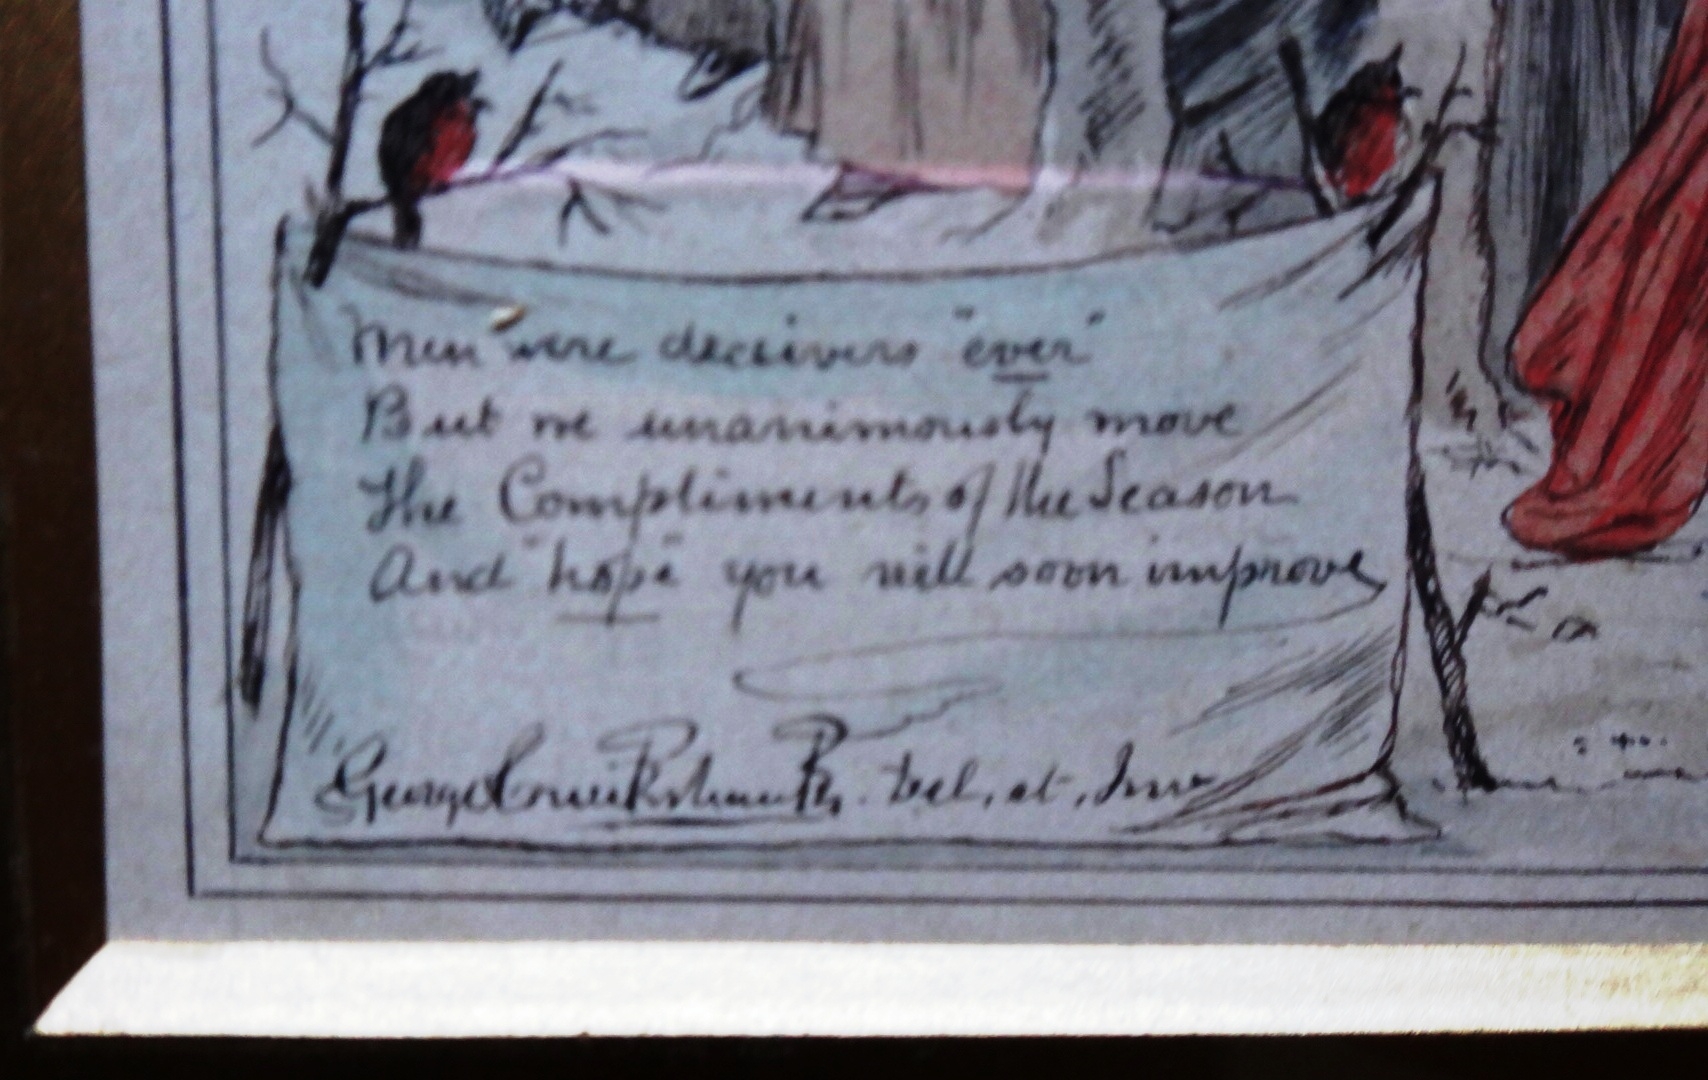 Men were deceivers "ever"
But we unanimously move
The Compliments of the Season
And "hope" you will soon improve
George Cruikshank. Del, et, Inv